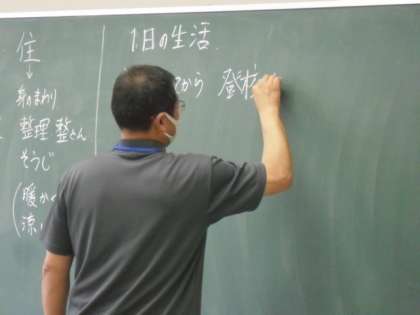 住
↓
身のまわり
整理 整とん
そうじ
(暖か
涼
1日の生活
てから 登校